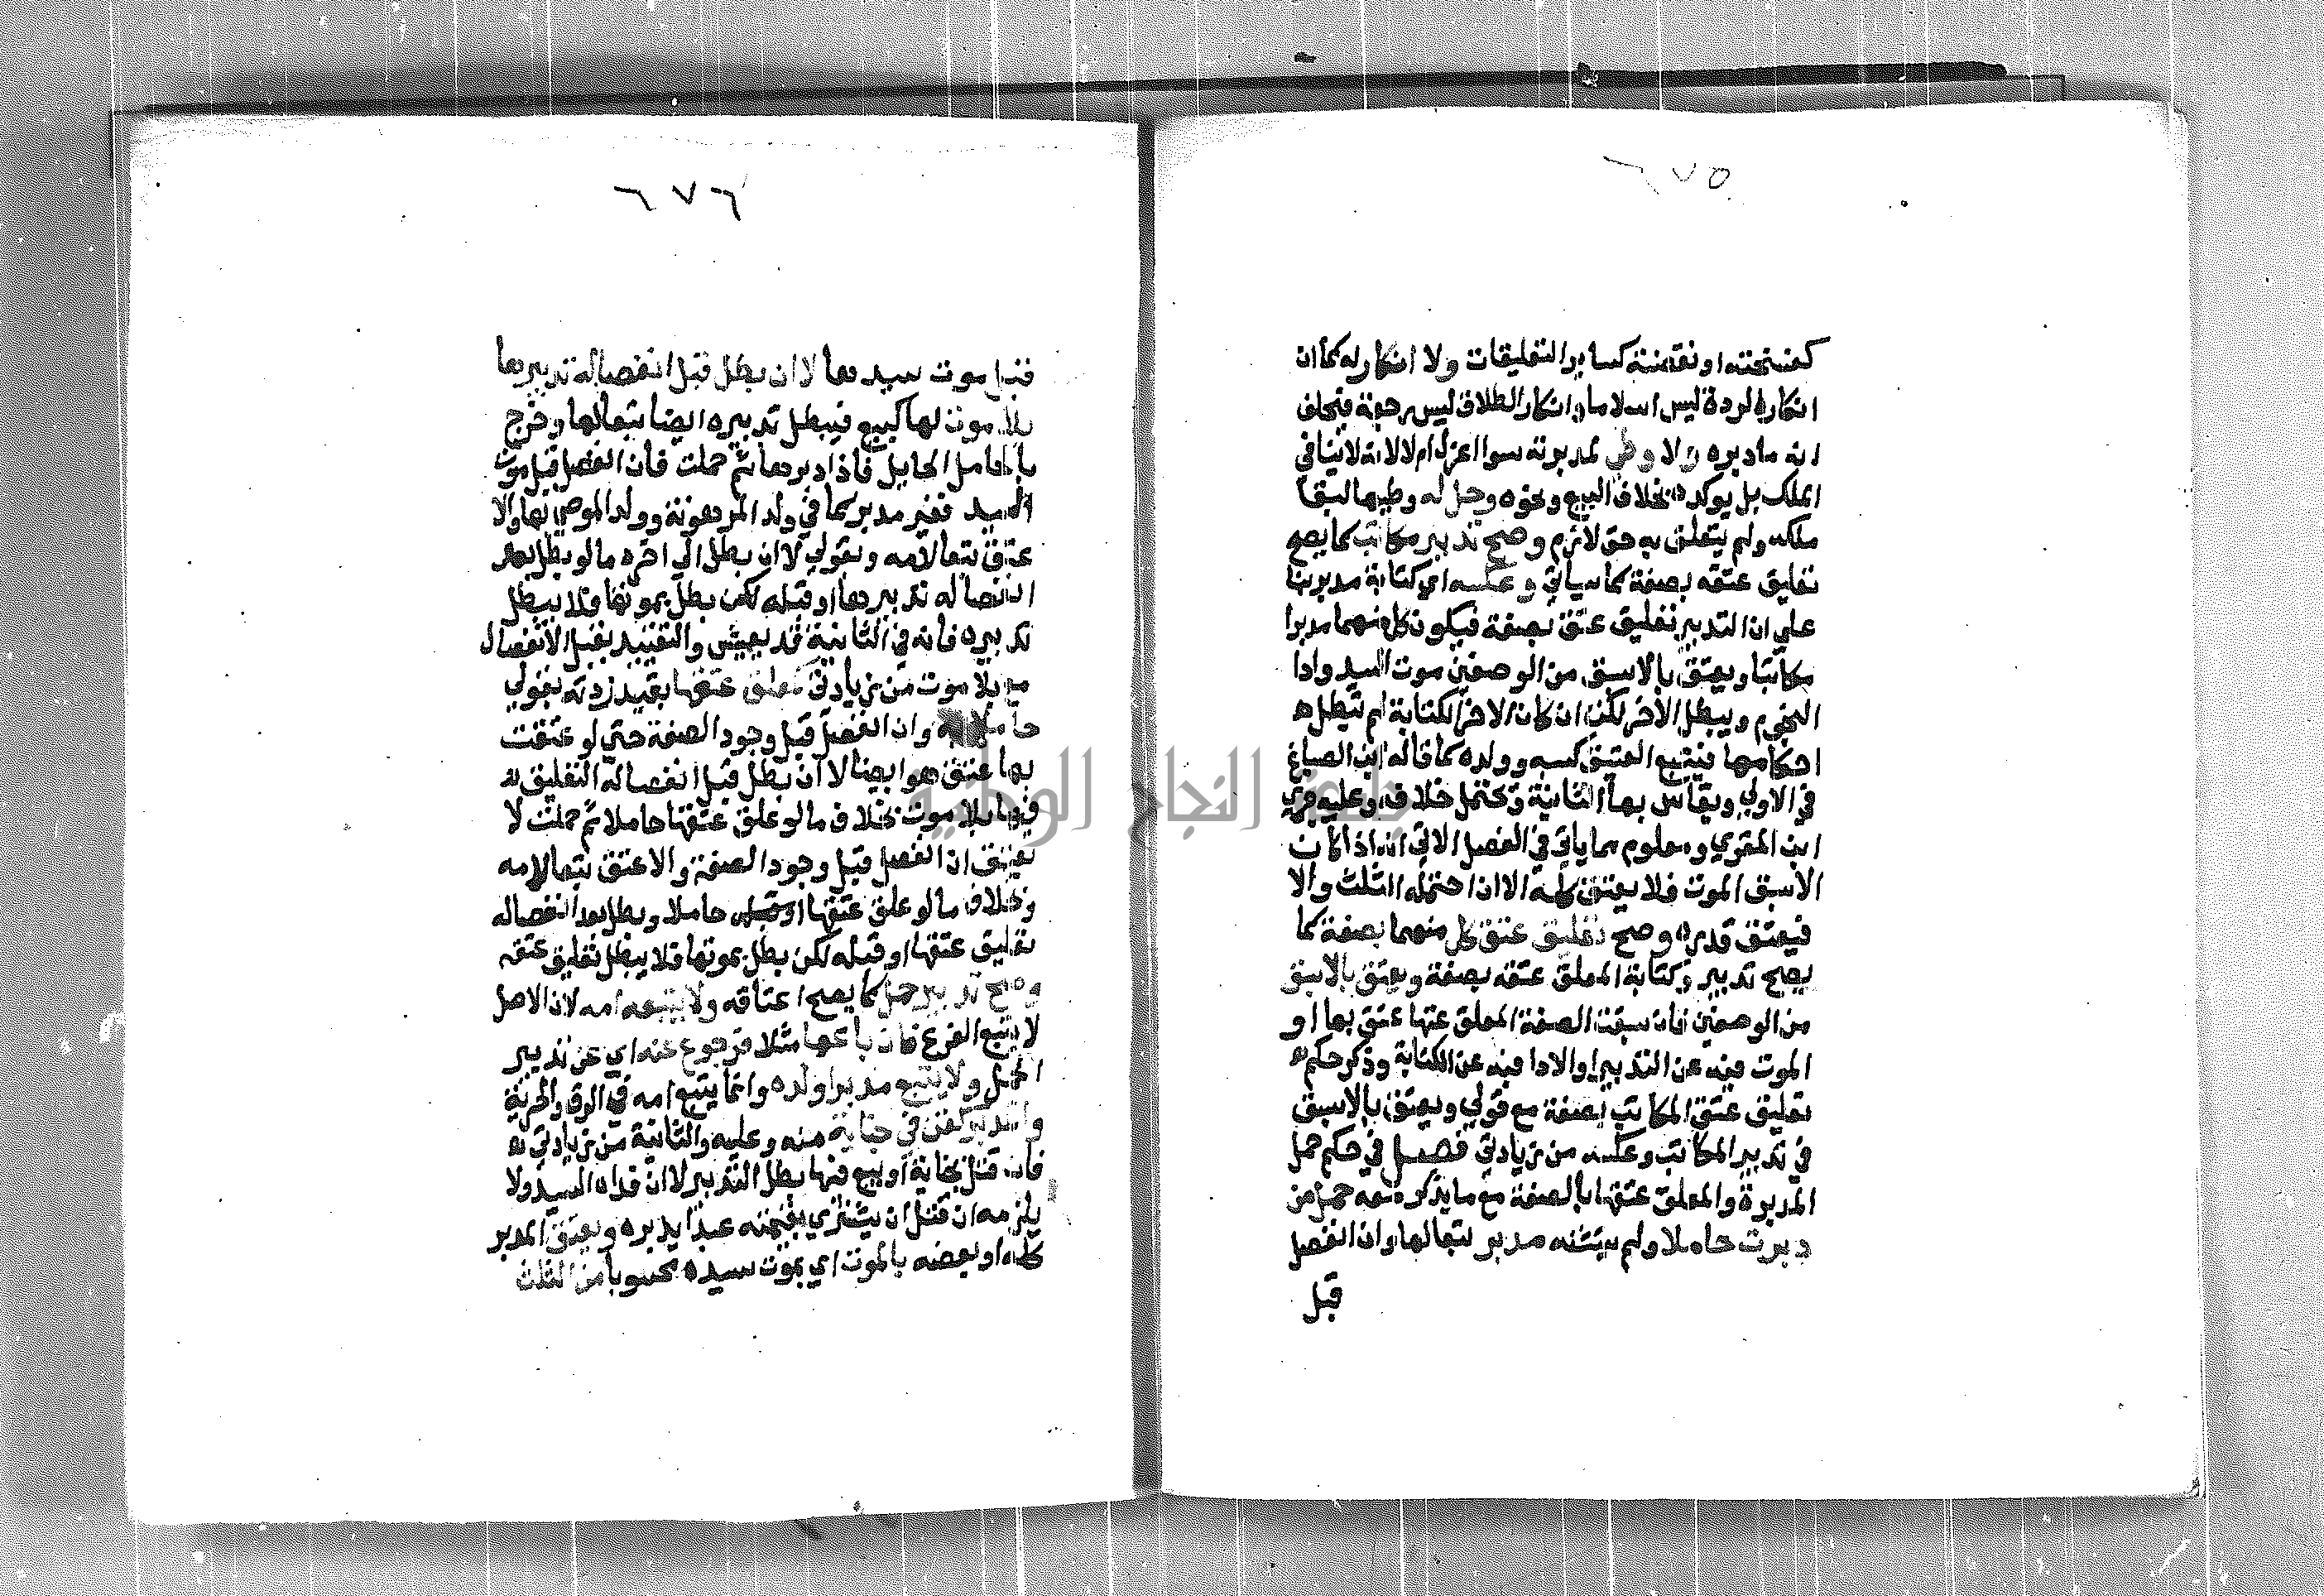 ٦٧٥
كفسختته او نقضته كساير التعليقات ولا انكار له كما ان
انكار الردة ليس اسلاما وانكار الطلاق ليس رجعة فيحلف
انه ما دبره ولا وطي لمدبرته سوا اعزل ام لا لانه لا ينافي
الملك بل يوكده بخلاف البيع ونحوه وحل له وطيها لبقا
ملكه ولم يتعلق به حق لازم وصح تدبير مكاتب كما يصح
تعليق عتقه بصفة كما سياتي وعكسه اي كتابة مدبر بنا
علي ان التدبير تعليق عتق بصفة فيكون كل منهما مدبرا
مكاتبا ويعتق بالاسبق من الوصفين موت السيد وادا
النجوم ويبطل الاخر لكن ان كان الاخر الكتابة لم تبطل
احكامها فيتبع العتيق كسبه وولده كما قاله ابن الصباغ
في الاولي ويقاس بها الثانية وتحتمل خلافه وعليه جري
ابن المقري ومعلوم مما ياتي في الفصل الاتي انه اذا كان
الاسبق الموت فلا يعتق كله الا ان احتمله الثلث والا
فيعتق قدره وصح تعليق عتق كل منهما بصفة كما
يصح تدبير وكتابة المعلق عتقه بصفة ويعتق بالاسبق
من الوصفين فان سبقت الصفة المعلق عتقها عتق بها او
الموت فبه عن التدبير او الادا فبه عن الكتابة وذكر حكم
تعليق عتق المكاتب بصفة مع قولي ويعتق بالاسبق
في تدبير المكاتب وعكسه من زيادتي فصل في حكم حمل
المدبرة والمعلق عتقها بالصفة مع ما يذكر معه حمل من
دبرت حاملا ولم يستثنه مدبر تبعا لها وان انفصل
قبل
٦٧٦
قبل موت سيدها لا ان بطل قبل انفصاله تدبيرها
بلا موت لها كبيع فيبطل تدبيره ايضا تبعا لها وخرج
بالحامل الحايل فاذا دبرها ثم حملت فان انفصل قبل موت
السيد فغير مدبر كما في ولد المرهونة وولد الموصي بها والا
عتق تبعا لامه وبقولي لا ان بطل الي اخره ما لو بطل بعد
انفصاله تدبيرها او قبله لكن بطل بموتها فلا يبطل
تدبيره فانه في الثانية قد يعيش والتقييد بقبل الانفصال
مع بلا موت من زيادتي كمعلق عتقها بقيد زدته بقولي
حاملا به وان انفصل قبل وجود الصفة حتي لو عتقت
بها عتق هو ايضا لا ان بطل قبل انفصاله التعليق
فيها بلا موت بخلاف ما لو علق عتقها حاملا ثم حملت لا
يعتق ان انفصل قبل وجود الصفة والا عتق تبعا لامه
وبخلاف ما لو علق عتقها حاملا وبطل بعد انفصاله
تعليق عتقها او قبله لكن بطل بموتها فلا يبطل تعليق عتقه
وصح تدبير حمل كما يصح اعتاقه ولا يتبعه امه لان الاصل
لا يتبع الفرع فان باعها مثلا فرجوع عنه اي عن تدبير
الحمل ولا يتبع مدبرا ولده وانما يتبع امه في الرق والحرية
والمدبر كقن في جناية منه وعليه والثانية من زيادتي
فان قتل بجناية او بيع فيها بطل التدبير لا ان فداه السيد ولا
يلزمه ان قتل ان يشتري بقيمته عبدا يدبره ويعتق المدبر
كله او بعضه بالموت اي بموت سيده محسوبا من الثلث
جامعة النجاح الوطنية